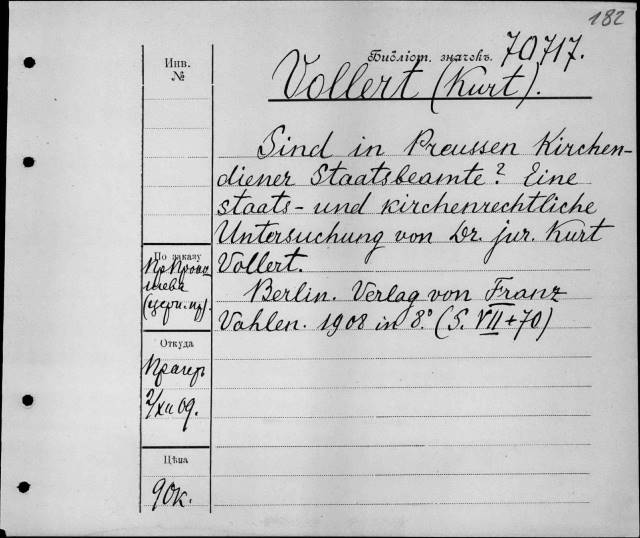 182
Инв.
№
Библіот. значекъ. 70717.
Vollert (Kurt).
Sind in Preussen Kirchen-
diener Staatsbeamte? Eine
staats- und kirchenrechtliche
Untersuchung von Dr. jur. Kurt
Vollert.
Berlin. Verlag von Franz
Vahlen. 1908 in 8.° (S. VII+70)
По заказу
Откуда
Прагеръ
2/XII 09.
Цѣна
90к.